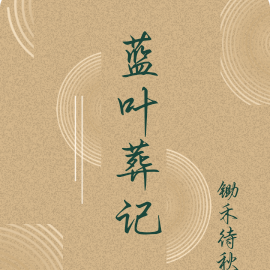 蓝叶葬记
锄禾待秋